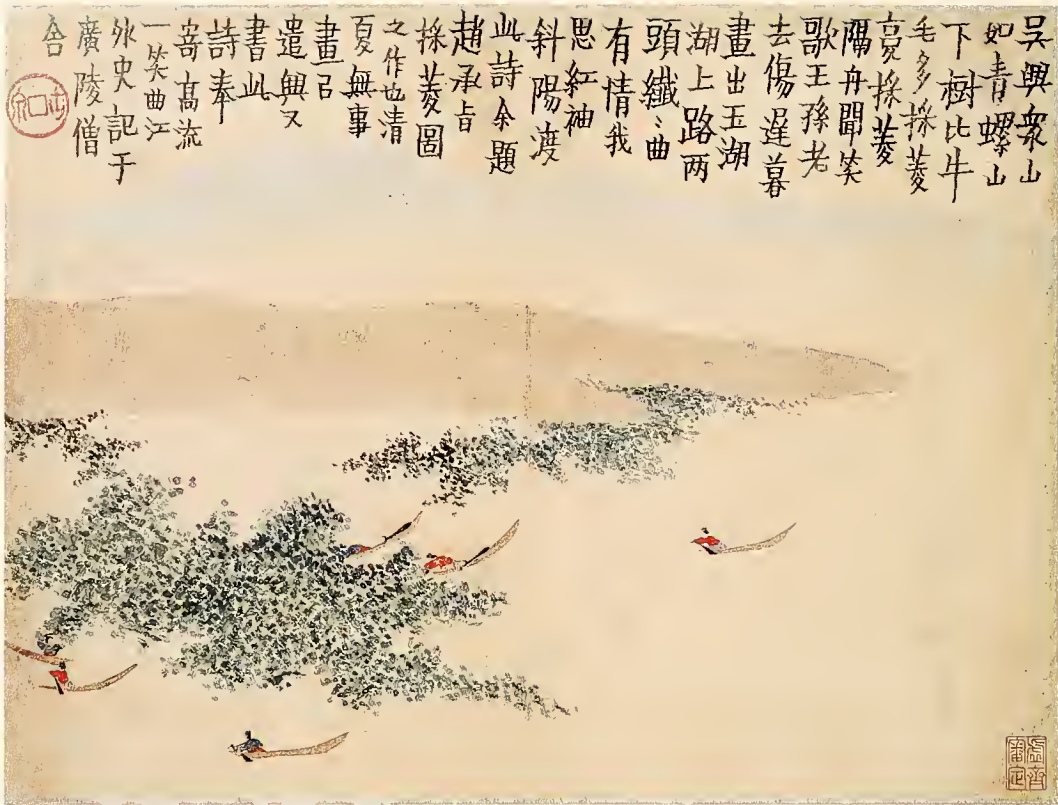 吳興衆山
如青螺山
下樹比牛
毛多採菱
复採菱
隔舟聞笑
歌王孫老
去傷遲暮
畫出玉湖
湖上路两
頭纖〻曲
有情我
思紅袖
斜陽渡
此詩余題
趙承旨
採菱圖
之作也清
夏無事
畫㠯
遣興又
書此
詩奉
寄高流
一笑曲江
外史記于
廣陵僧
舍
虛齋
審定